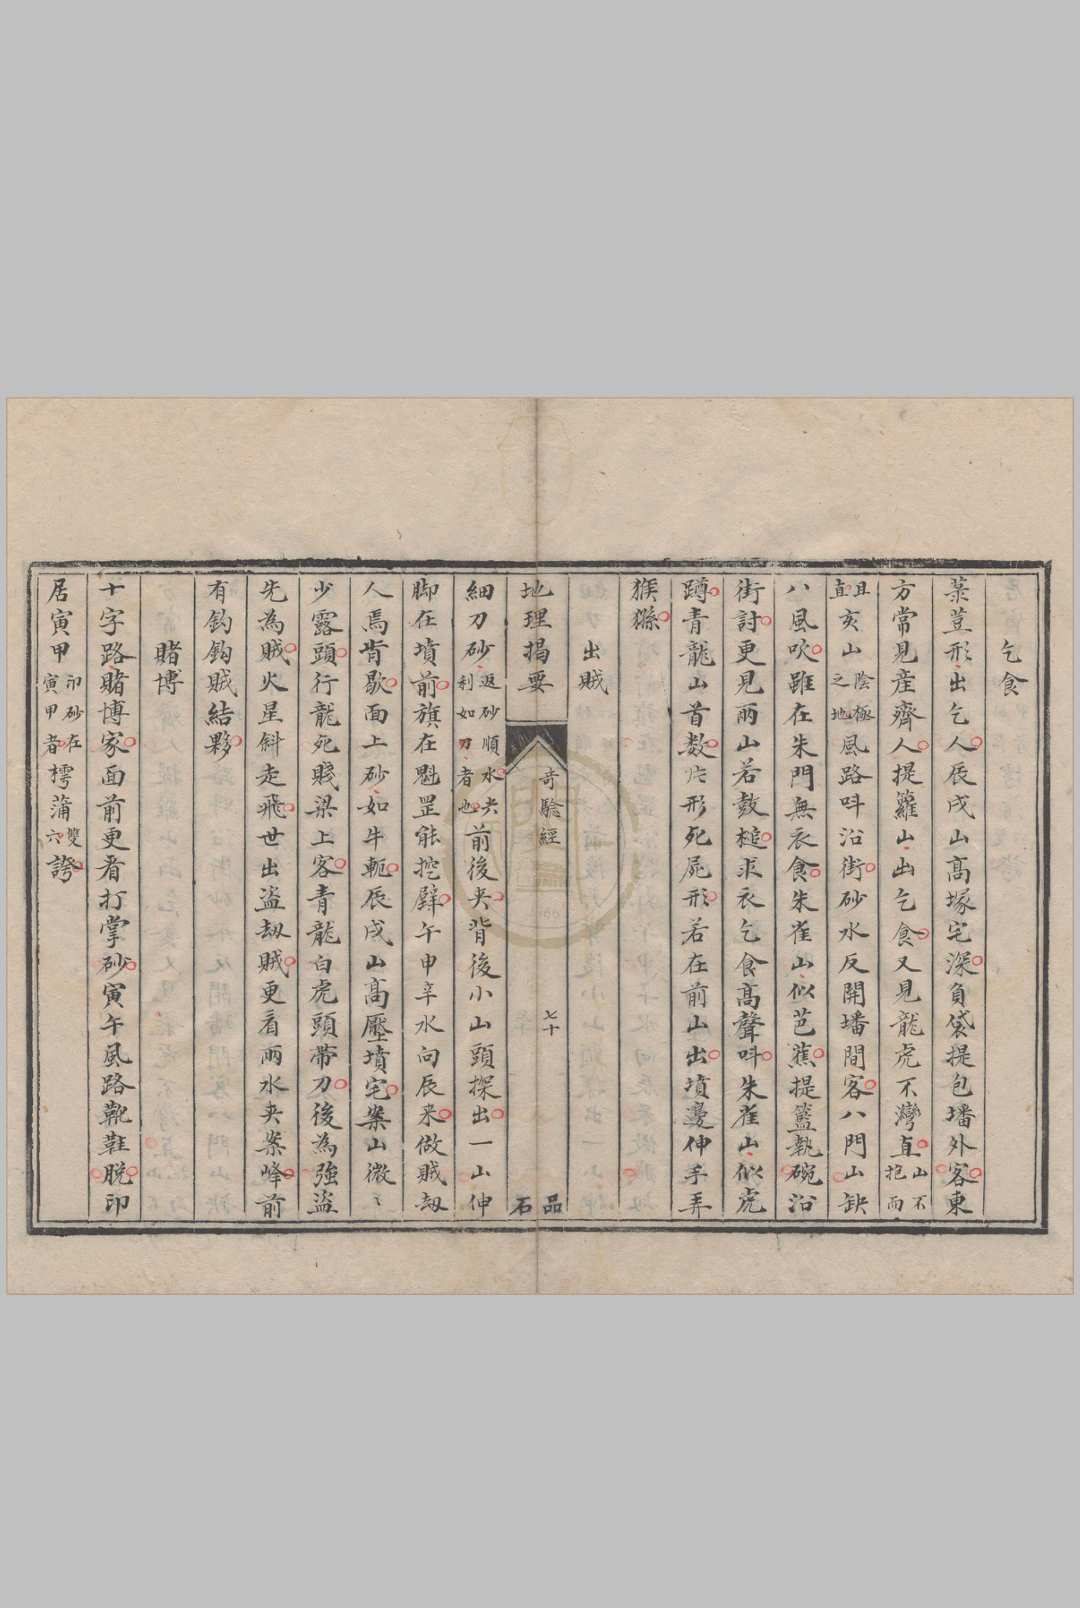 乞食
菉荳形出乞人辰戌山高塚宅深負袋提包墦外客東
方常見産齊人提籮山出乞食又見龍虎不灣直山不抱而
直且亥山陰極之地風路呌沿街砂水反開墦間客八門山缺
八風吹雖在朱門無衣食朱雀山似芭蕉提籃執碗沿
街討更見両山若敼槌求衣乞食高聲呌朱雀山似虎
蹲青龍山首数片形死屍形若在前山出墳邊伸手弄
猴猻
出賊
地理揭要
奇驗經
七十
品石
細刀砂返砂順水尖利如刀者也前後夾背後小山頭探出一山伸
脚在墳前旗在魁罡能挖壁午申辛水向辰来做賊刼
人焉肯歇面上砂如牛軛辰戌山高壓墳宅案山微〻
少露頭行龍死賤梁上客青龍白虎頭帶刀後為強盜
先為賊火星斜走飛世出盜刼賊更看両水夹案峰前
有鈎鈎賊結夥
賭博
十字路賭博家面前更看打掌砂寅午風路靴鞋脫印
居寅甲印砂在寅甲者樗蒲雙六誇